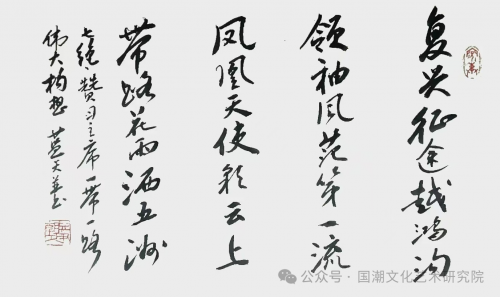 复兴征途越鸿沟
领袖风范第一流
凤凰天使彩云上
帶路花雨洒五洲
七绝·赞习主席一带一路
伟大构想 蓝天
公众号·国潮文化艺术研究院